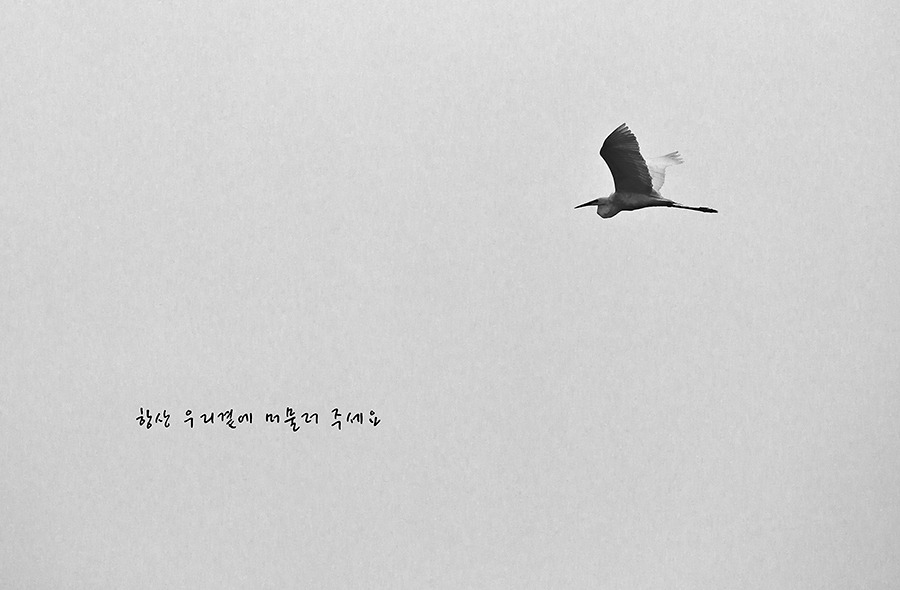 항상 우리곁에 머물러 주세요